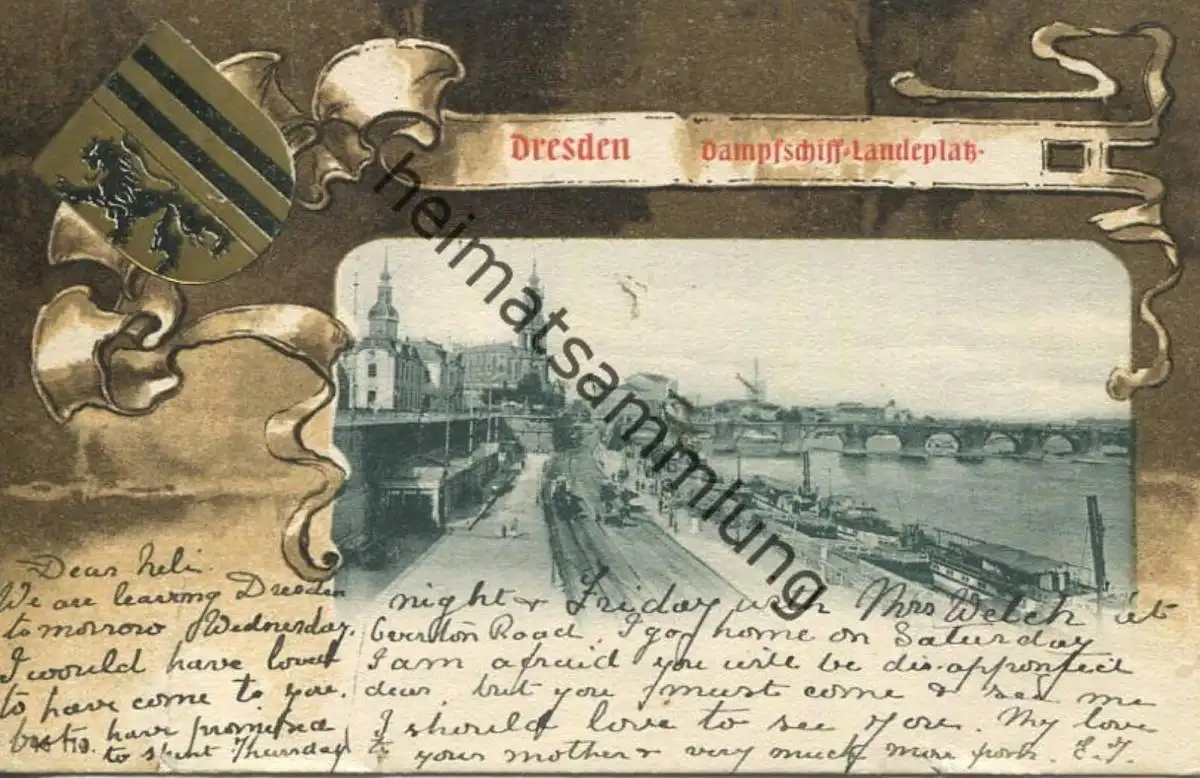 Dresden Dampfschiff-Landeplatz.
heimatsammlung
Dear
We are leaving Dresden
tomorrow Wednesday.
I would have loved
to have come to you,
but have promised
to spent Thursday
night & Friday with Mrs Welch at
Road. I go home on Saturday
I am afraid you will be disappointed
dear, but you must come & see me
I should love to see you. My love
to your mother & very much more from E.T.